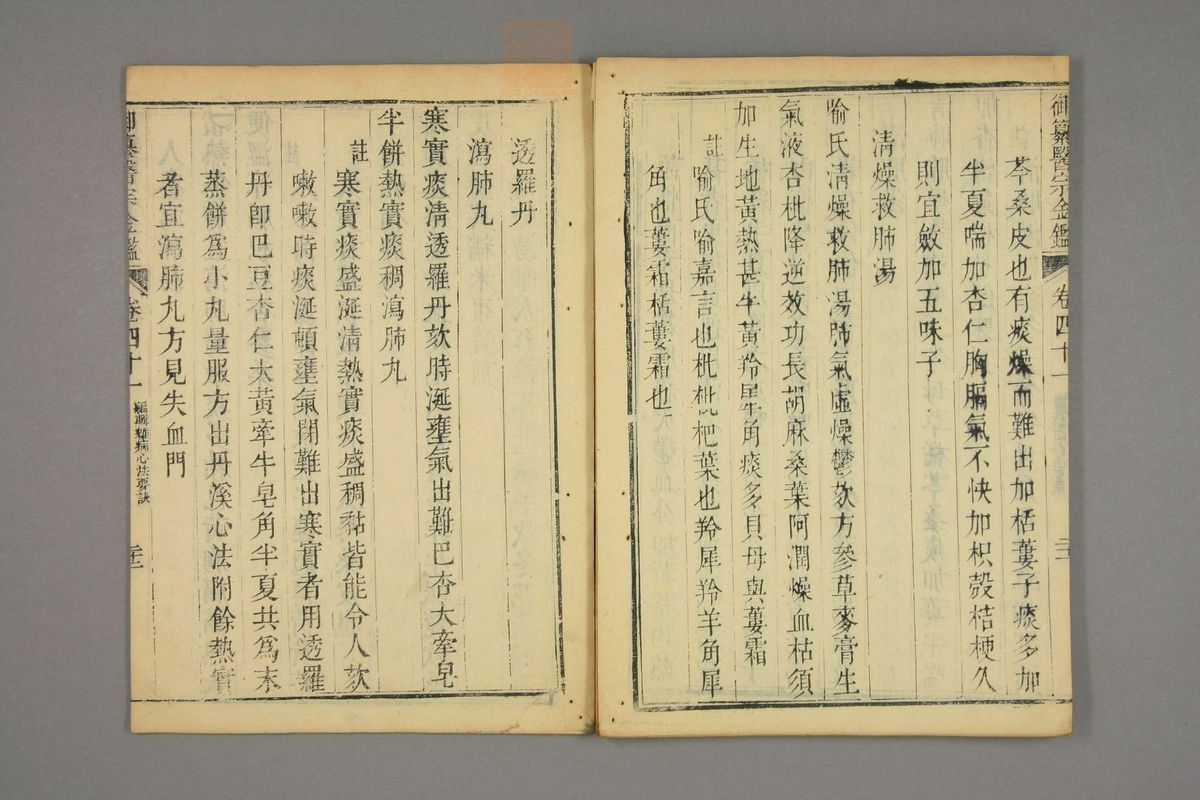 御纂醫宗金鑑 卷四十一
芩桑皮也有痰燥而難出加栝蔞子痰多加
半夏喘加杏仁胸膈氣不快加枳殼桔梗久
則宜斂加五味子
清燥救肺湯
喻氏清燥救肺湯肺氣虛燥鬱欬方參草麥膏生
氣液杏枇降逆效功長胡麻桑葉阿潤燥血枯須
加生地黃熱甚牛黃羚犀角痰多貝母與蔞霜
註
喻氏喻嘉言也枇枇杷葉也羚犀羚羊角犀
角也蔞霜栝蔞霜也
透羅丹
瀉肺丸
寒實痰清透羅丹欬時涎壅氣出難巴杏大牽皂
半餅熱實痰稠瀉肺丸
註
寒實痰盛涎清熱實痰盛稠黏皆能令人欬
嗽嗽時痰涎頓壅氣閉難出寒實者用透羅
丹卽巴豆杏仁大黃牽牛皂角半夏共爲末
蒸餅爲小丸量服方出丹溪心法附餘熱實
者宜瀉肺丸方見失血門
御纂醫宗金鑑 卷四十一 編輯雜病心法要訣